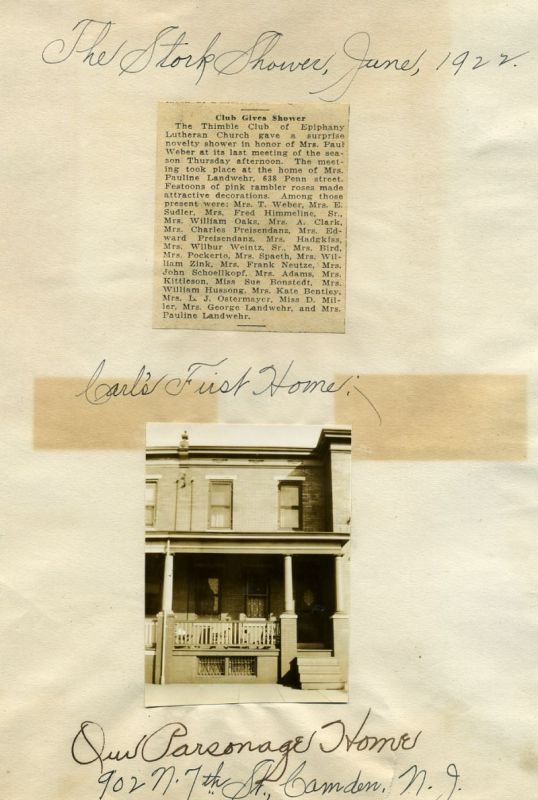 The Stork Shower, June, 1922.
Club Gives Shower
The Thimble Club of Epiphany
Lutheran Church gave a surprise
novelty shower in honor of Mrs. Paul
Weber at its last meeting of the sea-
son Thursday afternoon. The meet-
ing took place at the home of Mrs.
Pauline Landwehr, 638 Penn street.
Festoons of pink rambler roses made
attractive decorations. Among those
present were: Mrs. T. Weber, Mrs. E.
Sudler, Mrs. Fred Himmeline, Sr.,
Mrs. William Oaks, Mrs. A. Clark,
Mrs. Charles Preisendanz, Mrs. Ed-
ward Preisendanz, Mrs. Hadgkiss,
Mrs. Wilbur Weintz, Sr., Mrs. Bird,
Mrs. Pockerto, Mrs. Spaeth, Mrs. Wil-
liam Zink, Mrs. Frank Neutze, Mrs.
John Schoellkopf, Mrs. Adams, Mrs.
Kittleson, Miss Sue Bonstedt, Mrs.
William Hussong, Mrs. Kate Bentley,
Mrs. L. J. Ostermayer, Miss D. Mil-
ler, Mrs. George Landwehr, and Mrs.
Pauline Landwehr.
Carl's First Home:
Our Parsonage Home
902 N. 7th St., Camden, N. J.